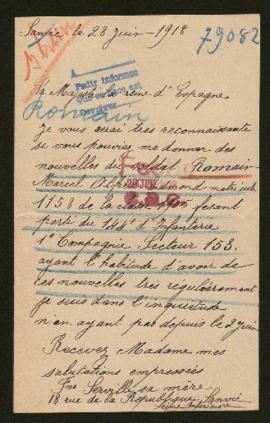 Sanvic le 28 Juin - 1918
79082
Pedir informes
Sa Majesté la reine d'Espagne
Romain
Je vous serai très reconnaissante
si vous pouviez me donner des
nouvelles du soldat Romain
Marcel Alphonse
1158 de la classe faisant
partie du 144e d'Infanterie
1e Compagnie Secteur 153.
ayant l'habitude d'avoir de
ces nouvelles très régulièrement
je suis dans l'inquiétude
n'en ayant pas depuis le 2 juin
Recevez Madame mes
salutations empressées
Serville sa mère
18 rue de la République Sanvic
Seine Inférieure